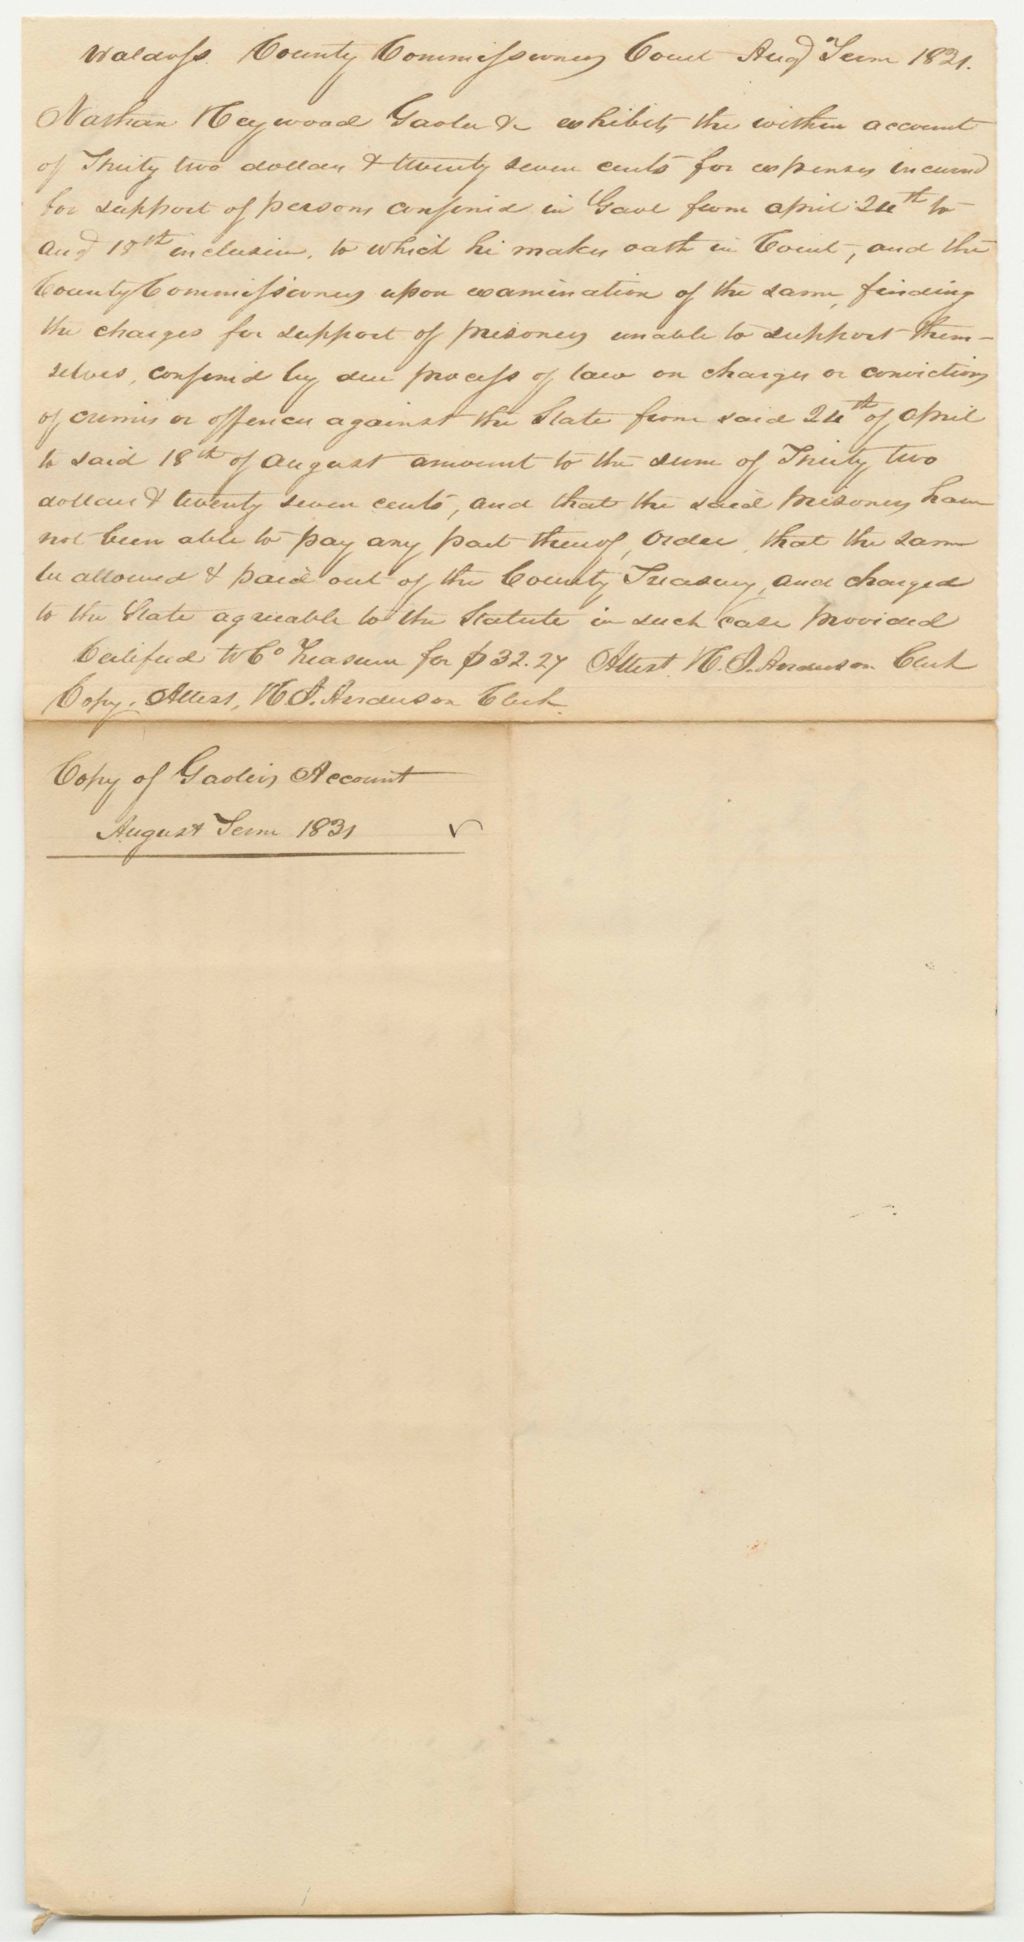 Waldo ss. County Commissioners Court Augt Term 1831.
Nathan Heywood Gaoler &c exhibits the within account
of Thirty two dollars & twenty seven cents for expenses incurred
for support of persons confined in Gaol from april 24th to
Augt 18th inclusive, to which he makes oath in Court, and the
County Commissioners upon examination of the same, finding
the charges for support of prisoners unable to support them-
selves, confined by due process of law on charges or convictions
of crimes or offences against the State from said 24th of April
to said 18th of August amount to the sum of Thirty two
dollars & twenty seven cents, and that the said prisoners have
not been able to pay any part thereof, Order, that the same
be allowed & paid out of the County Treasury, and charged
to the State agreeable to the Statute in such case provided
Certified to Co Treasurer for $32.27 Attest. H. J. Anderson Clerk
Copy. Attest, H. J. Anderson Clerk.
Copy of Gaolers Account
August Term 1831